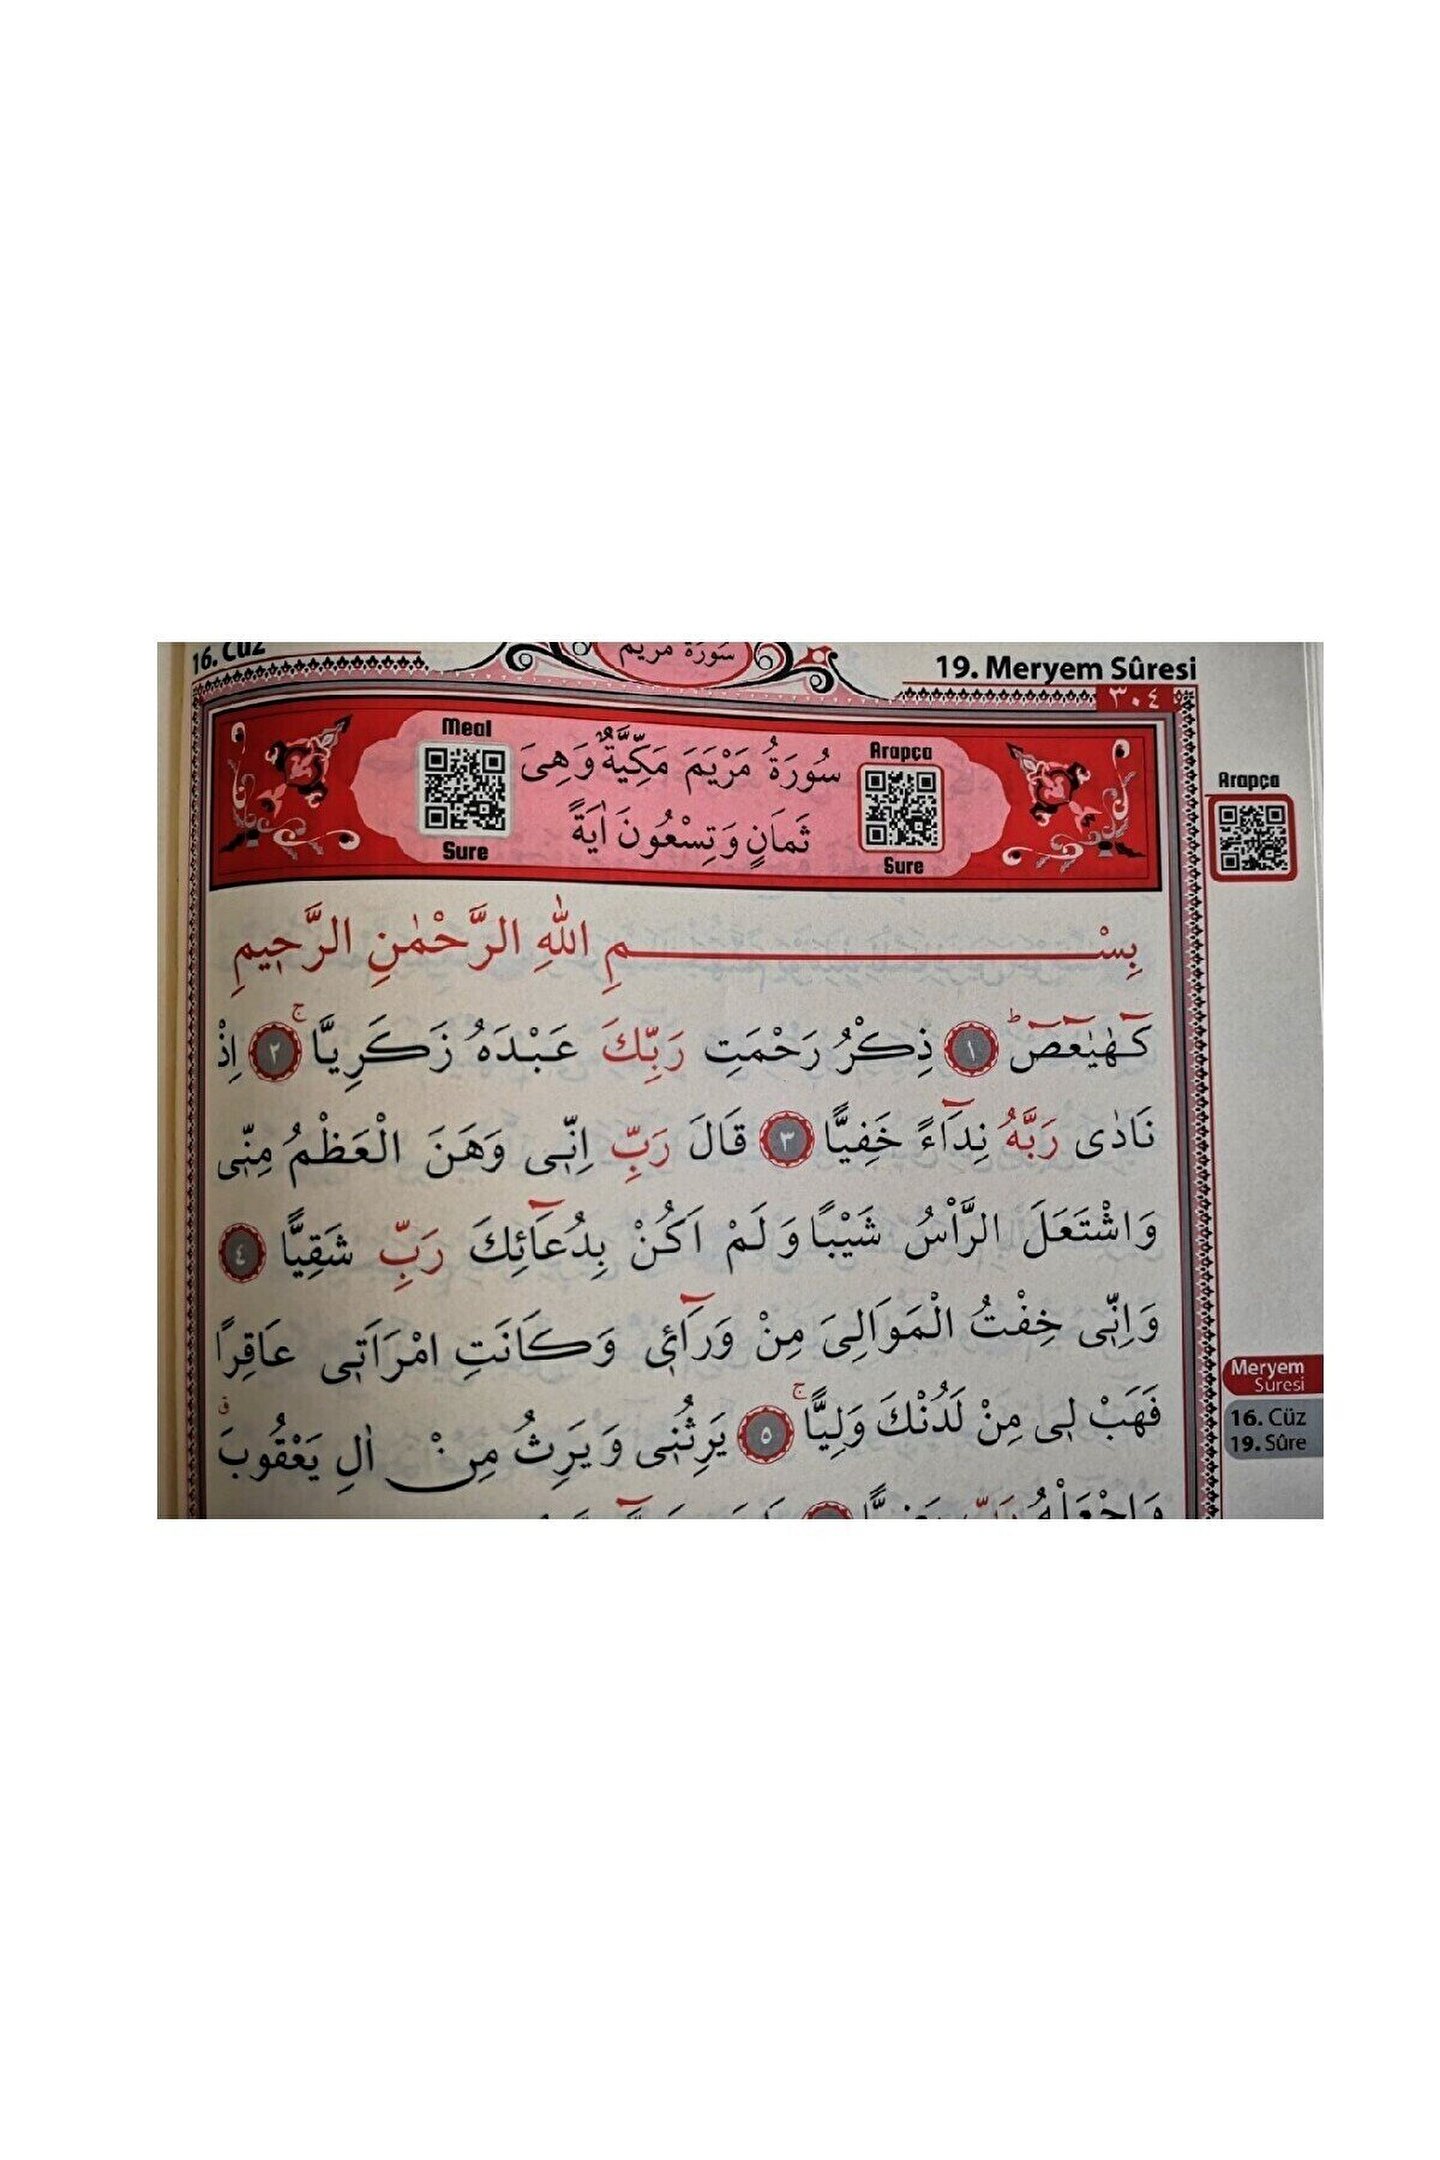 16. Cüz
سورة مريم
19. Meryem Sûresi
٣٠٤
Meal
Sure
سُورَةُ مَرْيَمَ مَكِّيَّةٌ وَهِىَ
ثَمَانٍ وَتِسْعُونَ اٰيَةً
Arapça
Sure
Arapça
بِسْمِ اللّٰهِ الرَّحْمٰنِ الرَّحٖيمِ
كٓهٰيٰعٓصٓ ؕ ﴿١﴾ ذِكْرُ رَحْمَتِ رَبِّكَ عَبْدَهُ زَكَرِيَّا ۚ ﴿٢﴾ اِذْ
نَادٰى رَبَّهُ نِدَٓاءً خَفِيًّا ﴿٣﴾ قَالَ رَبِّ اِنّٖى وَهَنَ الْعَظْمُ مِنّٖى
وَاشْتَعَلَ الرَّاْسُ شَيْبًا وَلَمْ اَكُنْ بِدُعَٓائِكَ رَبِّ شَقِيًّا ﴿٤﴾
وَاِنّٖى خِفْتُ الْمَوَالِىَ مِنْ وَرَٓائٖى وَكَانَتِ امْرَاَتٖى عَاقِرًا
فَهَبْ لٖى مِنْ لَدُنْكَ وَلِيًّا ۚ ﴿٥﴾ يَرِثُنٖى وَيَرِثُ مِنْ اٰلِ يَعْقُوبَ ۗ
وَاجْعَلْهُ رَبِّ رَضِيًّا
Meryem
Suresi
16. Cüz
19. Sûre